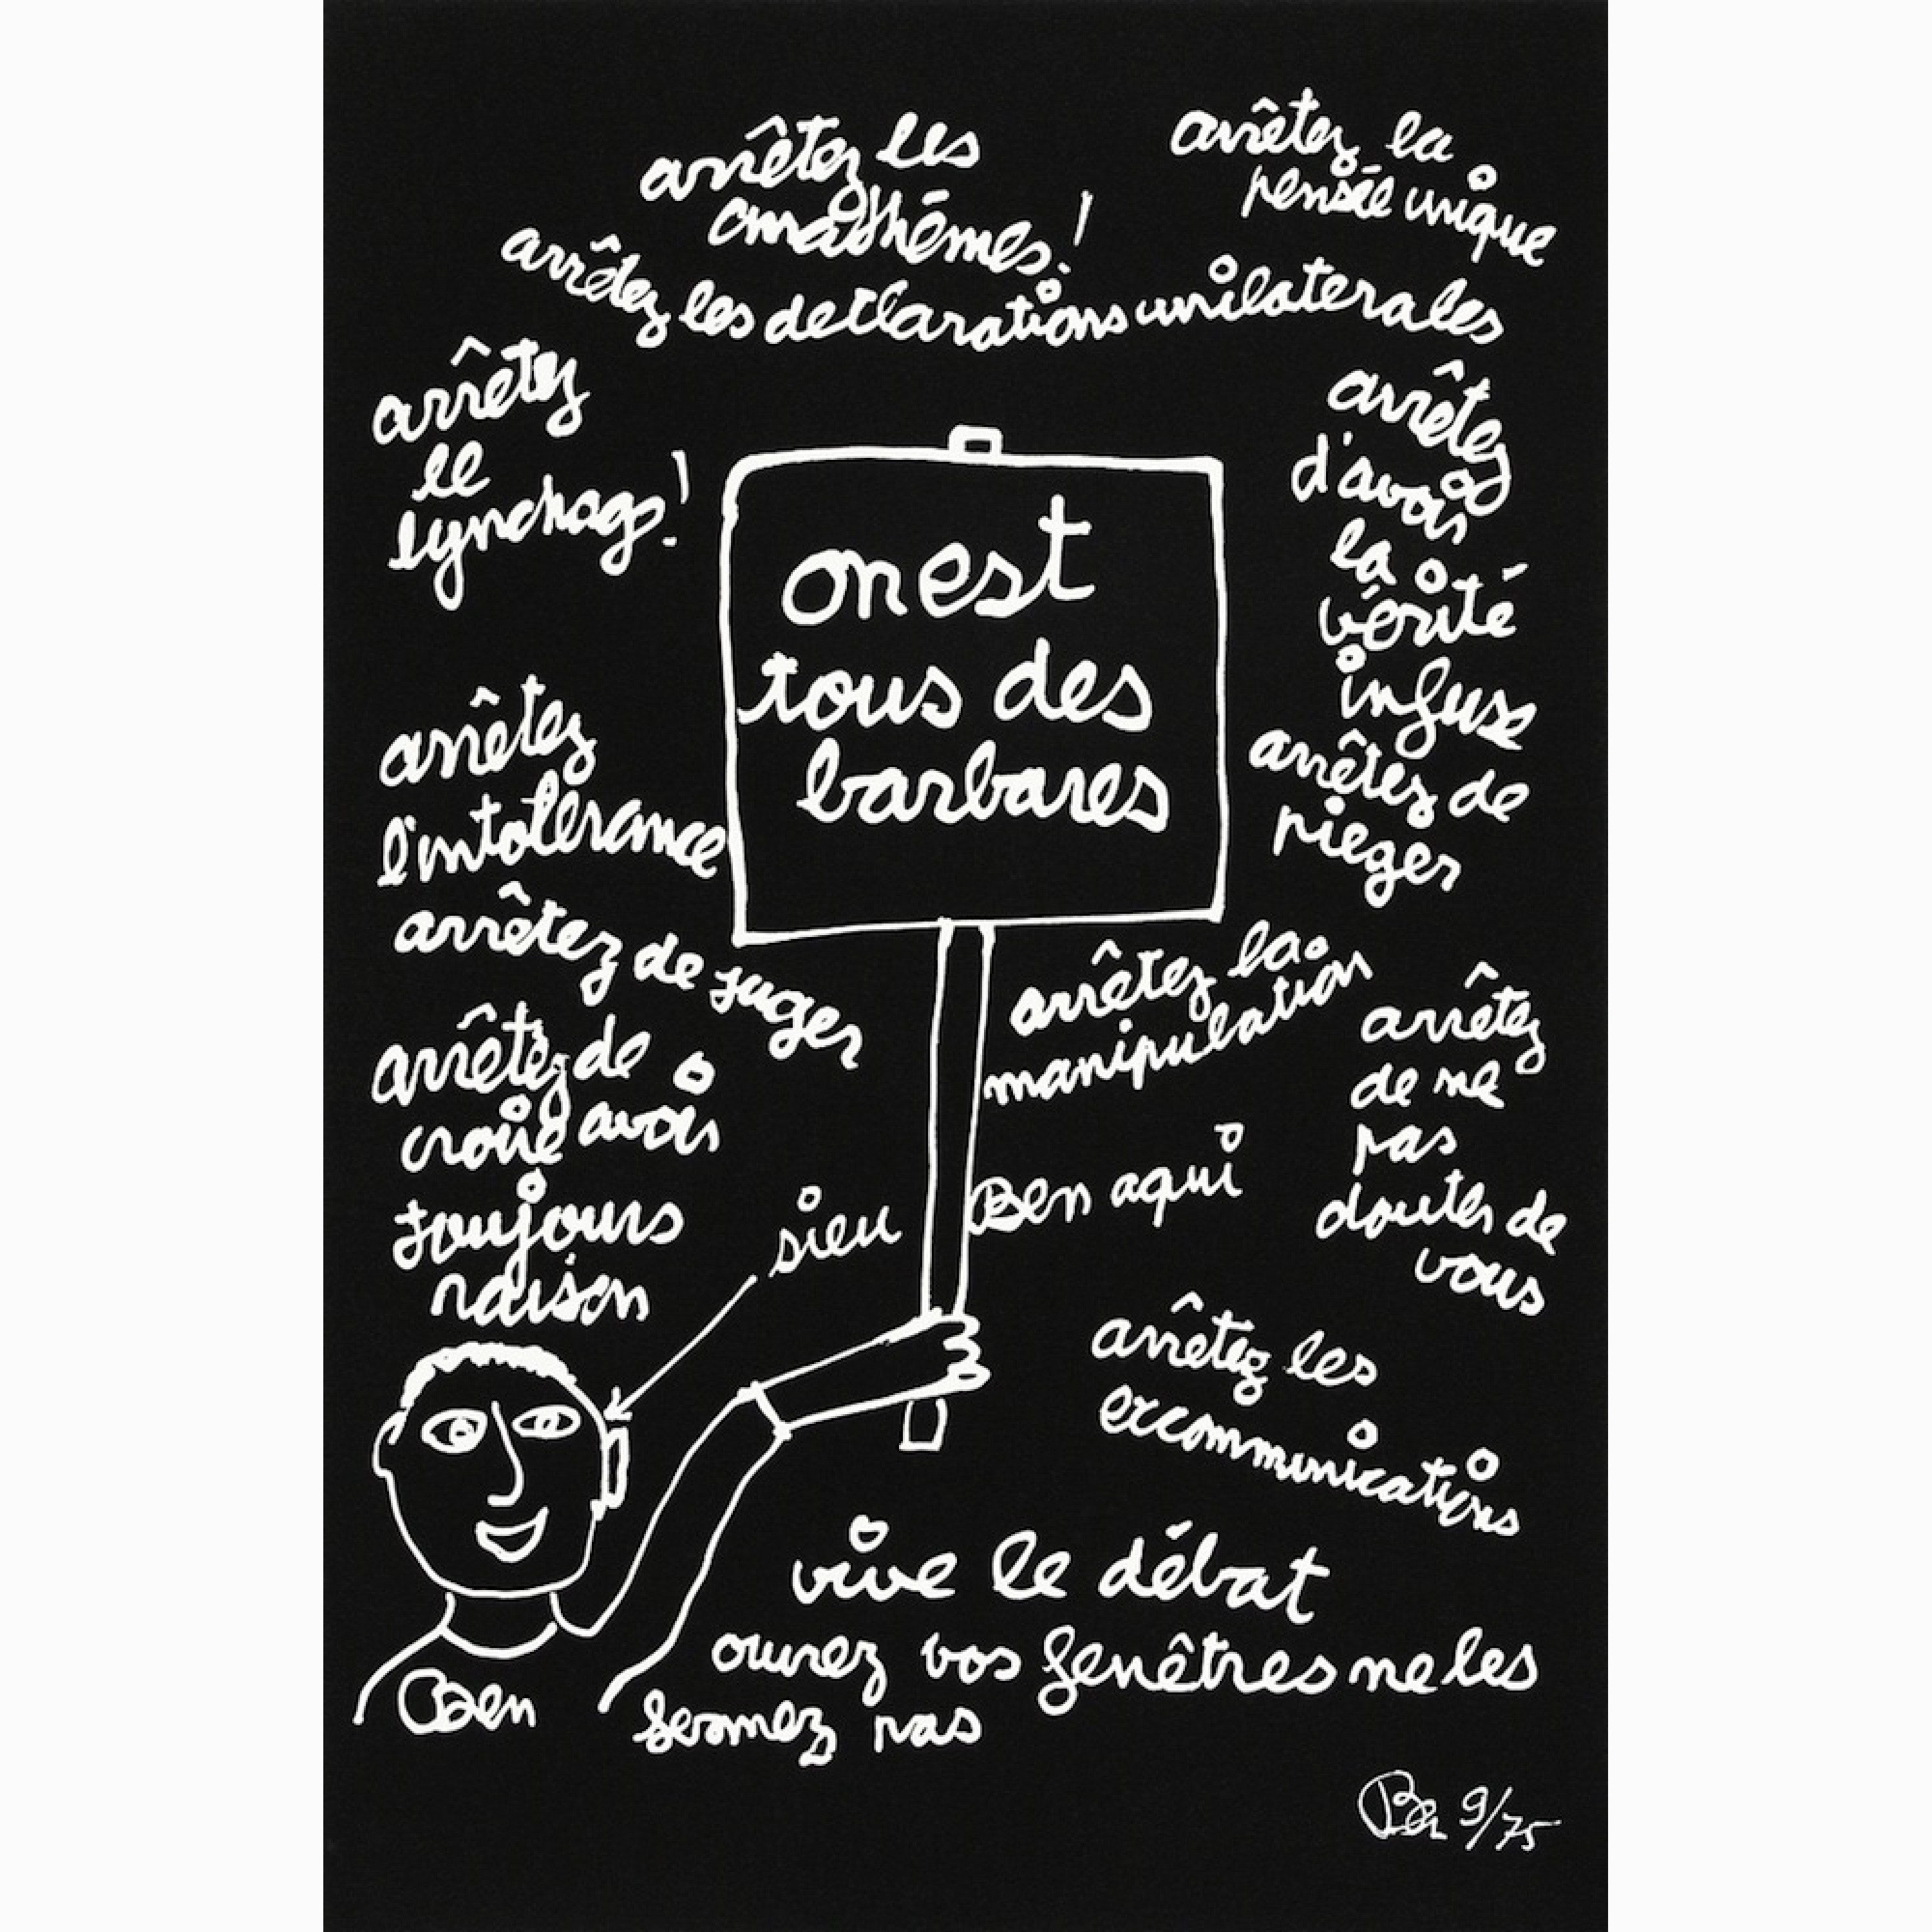 arrêtez les
anathêmes!
arrêtez la
pensée unique
arrêtez les declarations unilaterales
arrêtez
le
lynchage!
arrêtez
d'avoir
la
vérité
infuse
on est
tous des
barbares
arrêtez
l'intolerance
arrêtez de
pieger
arrêtez de juger
arrêtez la
manipulation
arrêtez de
croire avoir
toujours
raison
arrêtez
de ne
pas
douter de
vous
sieu Ben aqui
arrêtez les
excommunications
vive le débat
ouvrez vos fenêtres ne les
fermez pas
Ben
Ben 9/75